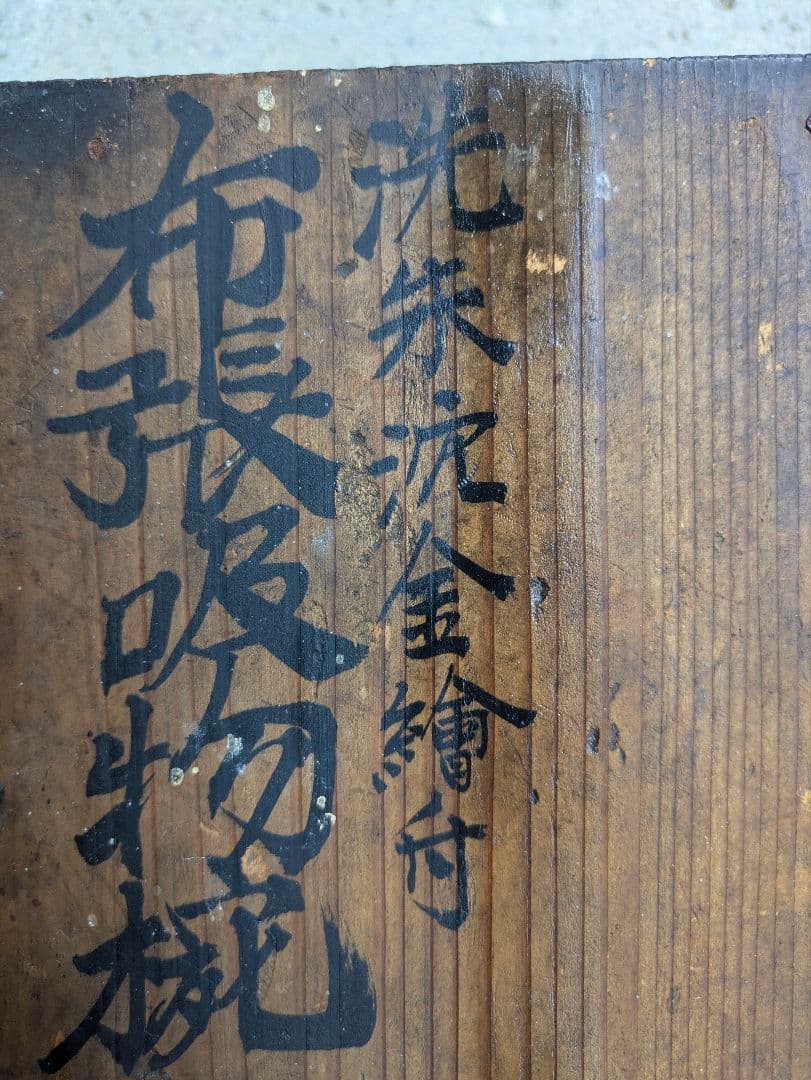 洗朱沈金繪付
布張吸物椀